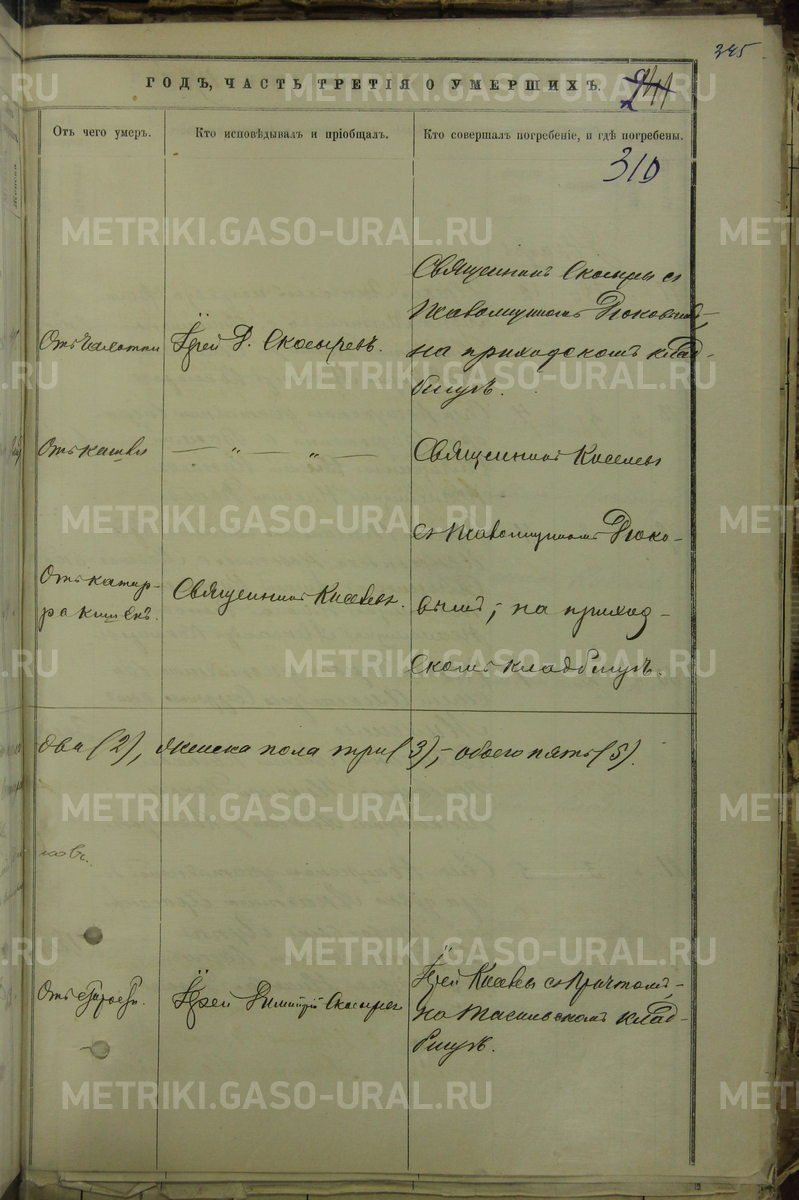 325
ГОДЪ, ЧАСТЬ ТРЕТІЯ О УМЕРШИХЪ.
Отъ чего умеръ.
Кто исповѣдывалъ и пріобщалъ.
Кто совершалъ погребеніе, и гдѣ погребены.
310
Отъ чахотки
Іерей Д. Скосыревъ.
Священникъ Скосыревъ съ
Псаломщикомъ
на приходскомъ клад-
бищѣ.
Отъ кашля
— „ — „ —
Священникъ Киселевъ
съ Псаломщикомъ
Отъ катар-
ра кишекъ.
Священникъ Киселевъ.
вымъ, на приход-
скомъ кладбищѣ.
два (2), женска пола три (3), обоего пять (5).
ковъ.
Отъ старости.
Іерей Димитрій Скосыревъ
Іерей Киселевъ съ Причтомъ,
на кладбищѣ.
METRIKI.GASO-URAL.RU